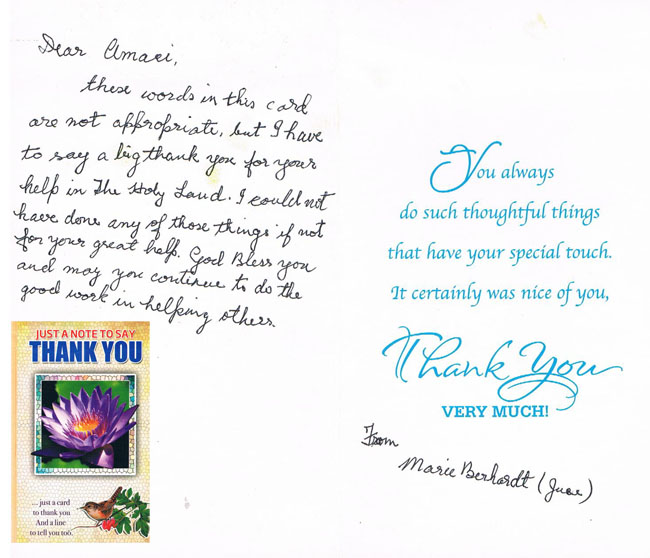 Dear Amaei,
these words in this card
are not appropriate, but I have
to say a big thank you for your
help in The Holy Land. I could not
have done any of those things if not
for your great help. God Bless you
and may you continue to do the
good work in helping others.
JUST A NOTE TO SAY
THANK YOU
... just a card
to thank you
And a line
to tell you too.
You always
do such thoughtful things
that have your special touch.
It certainly was nice of you,
Thank You
VERY MUCH!
From
Marie Berhardt (June)